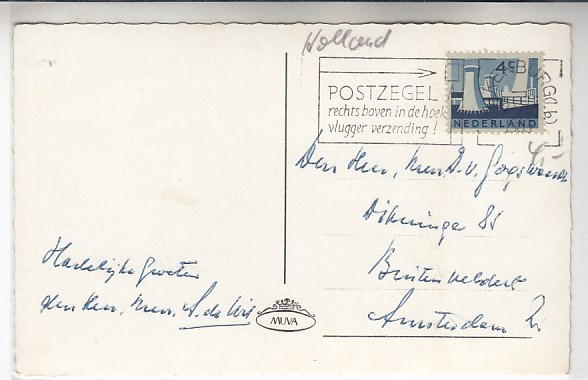 Holland
POSTZEGEL
rechts boven in de hoek
vlugger verzending!
4c
NEDERLAND
Den Heer, Mevr. D. v.
85
Buitenveldert
Amsterdam Z.
Hartelijke Groeten
den Heer, Mevr. A. de Vis
MUVA